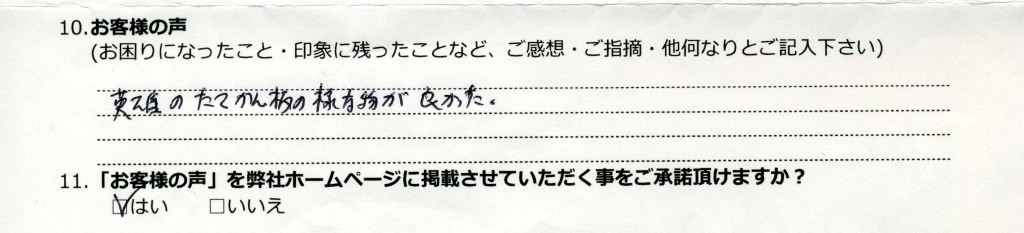 10.お客様の声
(お困りになったこと・印象に残ったことなど、ご感想・ご指摘・他何なりとご記入下さい)
英雄のたてかん板の様な物が良かた。
11.「お客様の声」を弊社ホームページに掲載させていただく事をご承諾頂けますか？
☑はい □いいえ